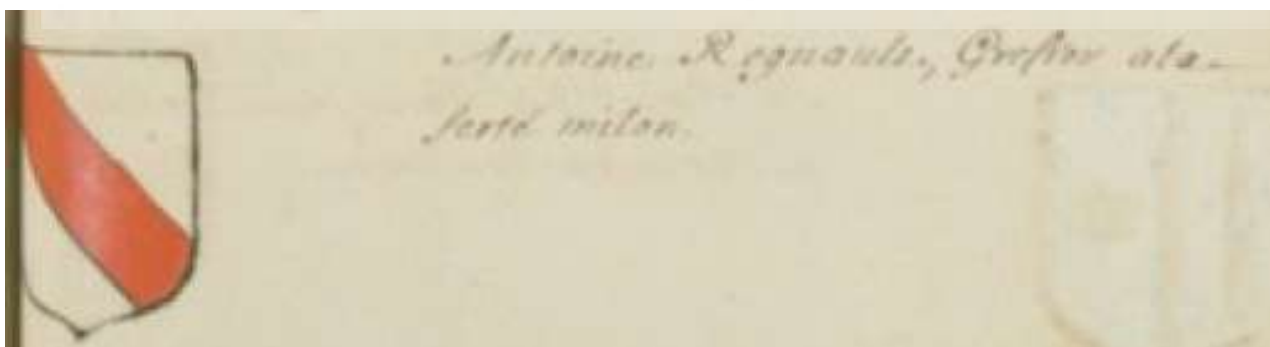 Antoine Regnault, Greffier ala-
ferté milon.